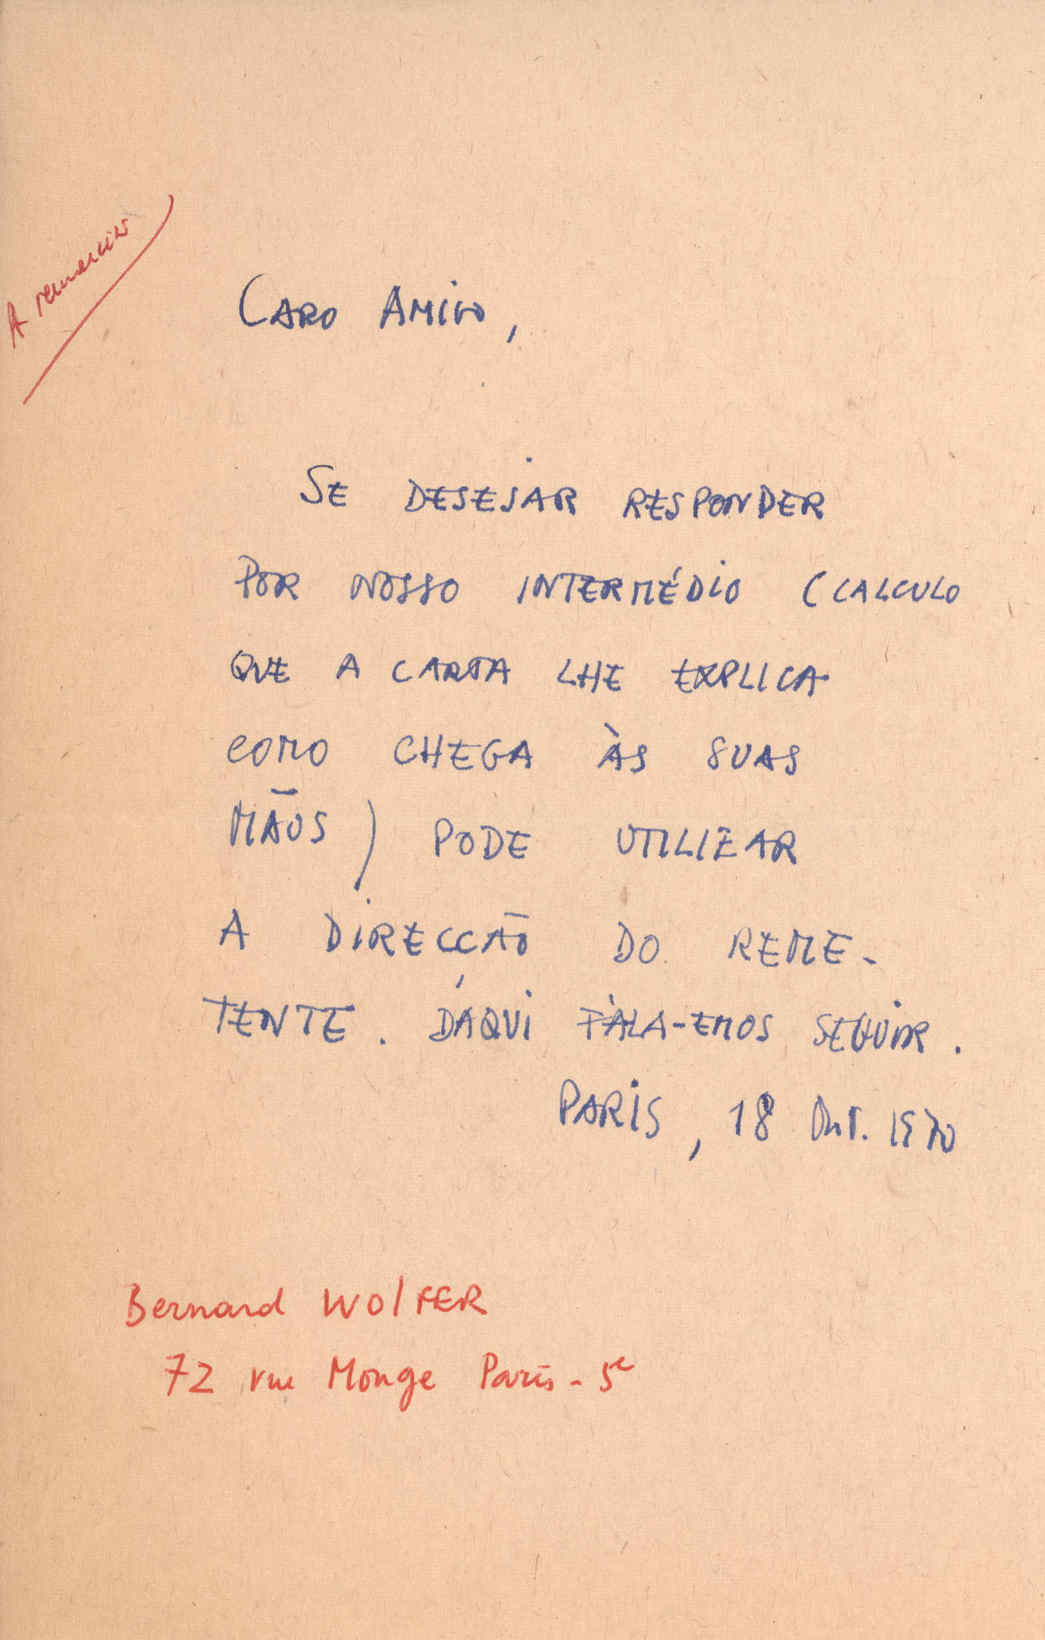 A remercier
CARO AMIGO,
SE DESEJAR RESPONDER
POR NOSSO INTERMÉDIO (CALCULO
QUE A CARTA LHE EXPLICA
COMO CHEGA ÀS SUAS
MÃOS) PODE UTILIZAR
A DIRECÇÃO DO REME-
TENTE. DAQUI FÀLA-EMOS SEGUIR.
PARIS, 18 OUT. 1970
Bernard WOLFER
72 rue Monge Paris - 5e